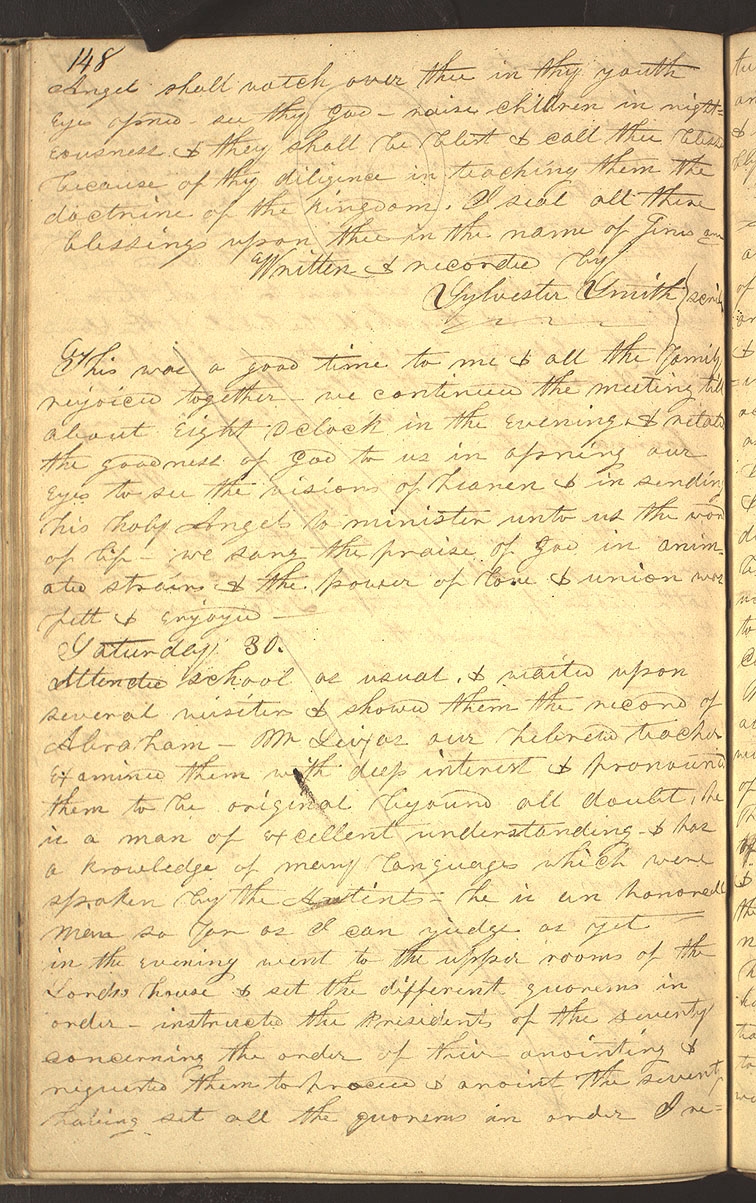 148
Angel shall watch over thee in thy youth
Eyes opned - see thy God - raise children in right=
eousness & they shall be blest & call thee bless
because of thy diligence in teaching them the
doctrine of the kingdom. I seal all these
blessings upon thee in the name of Jesus
Written & recorded by
Sylvester Smith } scri
This was a good time to me & all the family
rejoiced together - we continued the meeting till
about Eight Oclock in the Evening & relate
the goodness of God to us in opning our
Eyes to see the visions of heaven & in sending
his holy Angels to minister unto us the word
of life - we sang the praise of God in anim-
ated strains & the power of love & union was
felt & enjoyed -
Saturday 30.
Attended school as usual, & waited upon
several visiters & showed them the record of
Abraham - Mr Seixas our hebrew teacher
examined them with deep interest & pronounced
them to be original beyound all doubt, he
is a man of excellent understanding - & has
a knowledge of many languages which were
spoken by the Antints - he is an honorable
man so far as I can judge as yet
in the evening went to the upper rooms of the
Lords house & set the different quorems in
order - instructed the Presidents of the seventy
concerning the order of their anointing &
requested them to proceed & anoint the seventy
having set all the quorems in order I re=